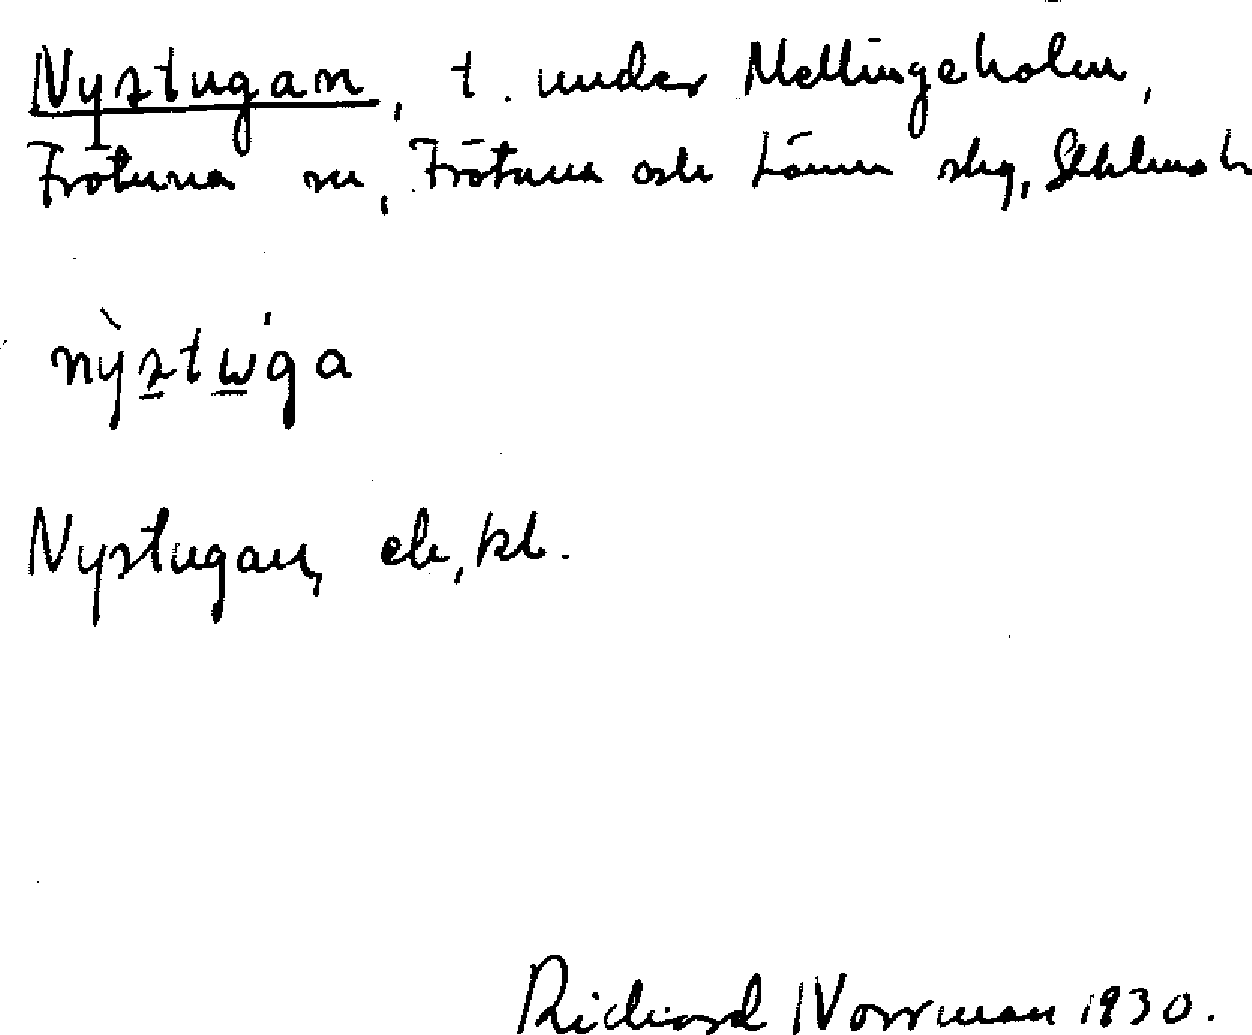 Nystugan, t. under Mellingeholm,
Frötuna sn, Frötuna och Länna skg, Sthlms l.
nỳstẁga
Nystugan, ek, kl.
Richard Norrman 1930.